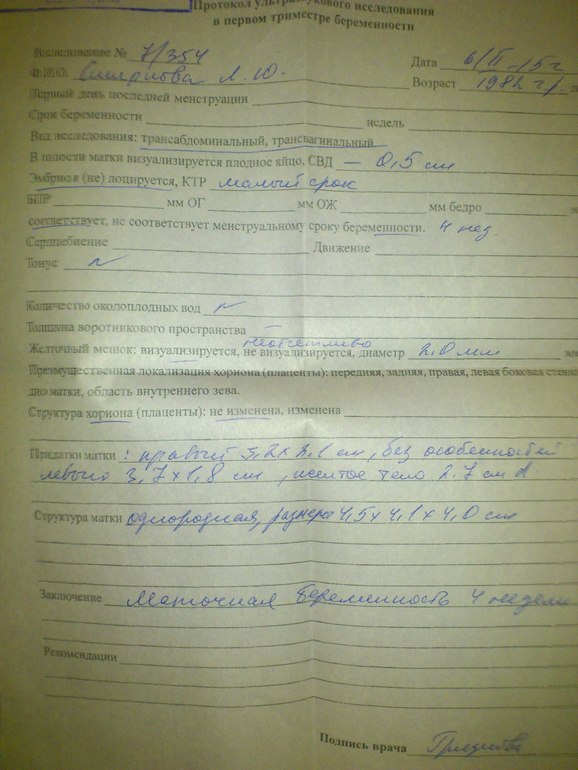 Протокол ультразвукового исследования
в первом триместре беременности
Исследование № 7/354
Дата 6/II-15г
Ф.И.О. Смирнова Л. Ю.
Возраст 1982 г/
Первый день последней менструации
Срок беременности недель
Вид исследования: трансабдоминальный, трансвагинальный
В полости матки визуализируется плодное яйцо, СВД — 0,5 см
Эмбрион (не) лоцируется, КТР малый срок
БПР мм ОГ мм ОЖ мм бедро
соответствует, не соответствует менструальному сроку беременности. 4 нед.
Сердцебиение Движение
Тонус N
Количество околоплодных вод N
Толщина воротникового пространства
неотчетливо
Желточный мешок: визуализируется, не визуализируется, диаметр 2.0 мм мм
Преимущественная локализация хориона (плаценты): передняя, задняя, правая, левая боковая стенка
дно матки, область внутреннего зева.
Структура хориона (плаценты): не изменена, изменена
Придатки матки : правый 3,2 х 2.1 см, без особенностей
левый 3,7 х 1,8 см, желтое тело 2.7 см d
Структура матки однородная, размеры 4,5 х 4,1 х 4,0 см
Заключение Маточная беременность 4 недели
Рекомендации
Подпись врача